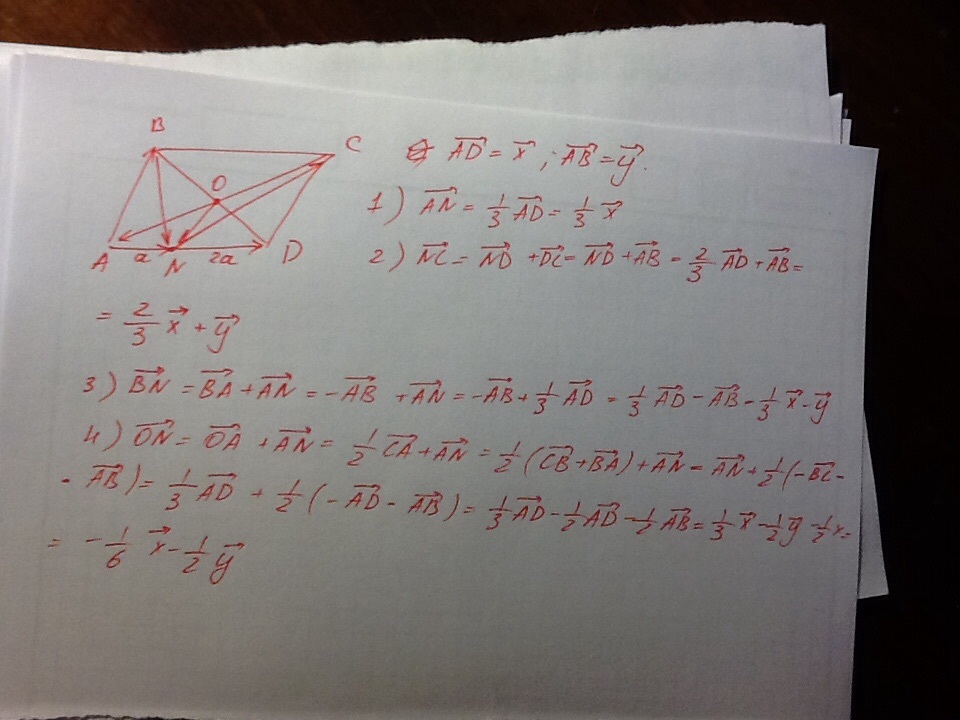 B
C
O
A a N 2a D
AD⃗ = x⃗ ; AB⃗ = y⃗.
1) AN⃗ = 1/3 AD⃗ = 1/3 x⃗
2) NC⃗ = ND⃗ + DC⃗ = ND⃗ + AB⃗ = 2/3 AD⃗ + AB⃗ =
= 2/3 x⃗ + y⃗
3) BN⃗ = BA⃗ + AN⃗ = -AB⃗ + AN⃗ = -AB⃗ + 1/3 AD⃗ = 1/3 AD⃗ - AB⃗ = 1/3 x⃗ - y⃗
4) ON⃗ = OA⃗ + AN⃗ = 1/2 CA⃗ + AN⃗ = 1/2 (CB⃗ + BA⃗) + AN⃗ = AN⃗ + 1/2 (-BC⃗ -
- AB⃗) = 1/3 AD⃗ + 1/2 (-AD⃗ - AB⃗) = 1/3 AD⃗ - 1/2 AD⃗ - 1/2 AB⃗ = 1/3 x⃗ - 1/2 y⃗ - 1/2 x =
= -1/6 x⃗ - 1/2 y⃗